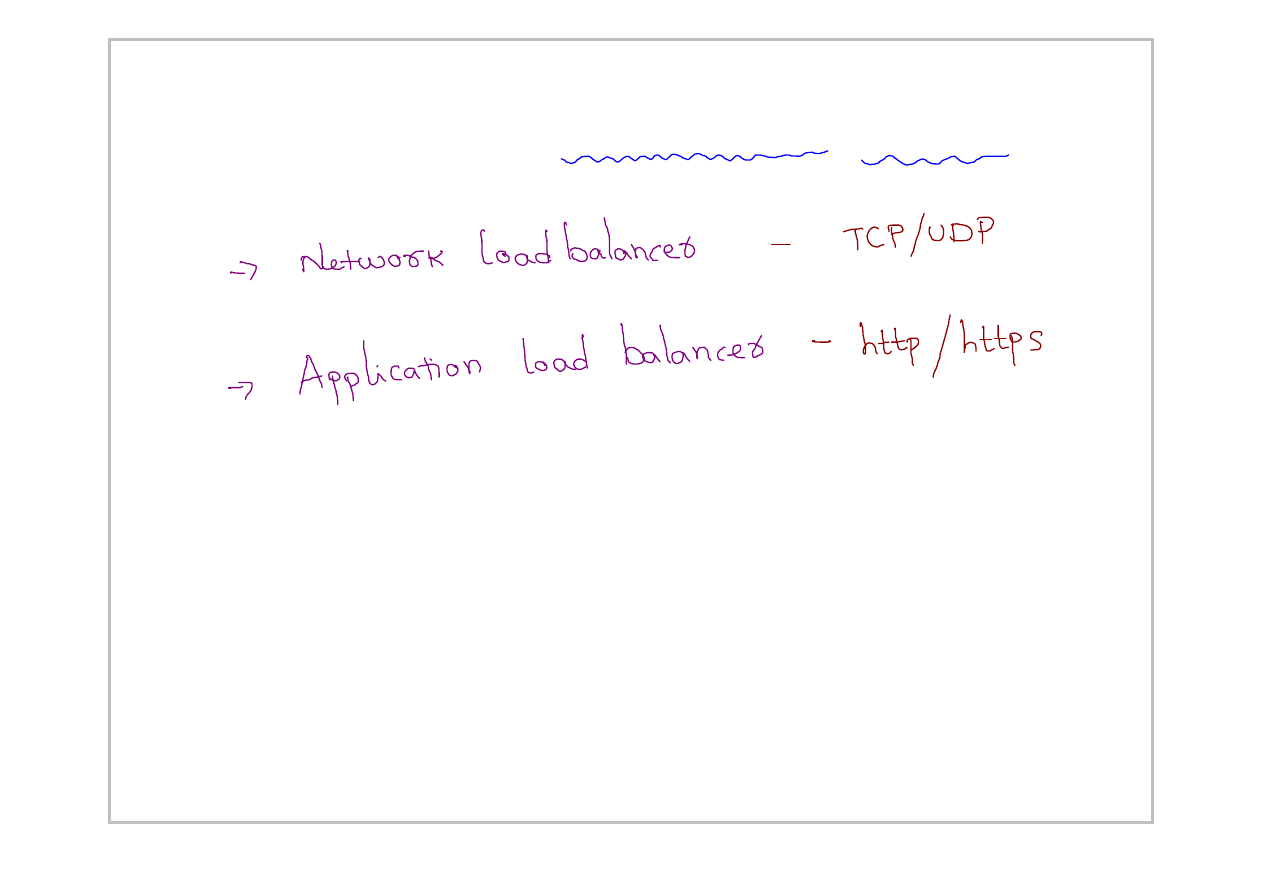 → Network load balancer - TCP/UDP
→ Application load balancer - http/https